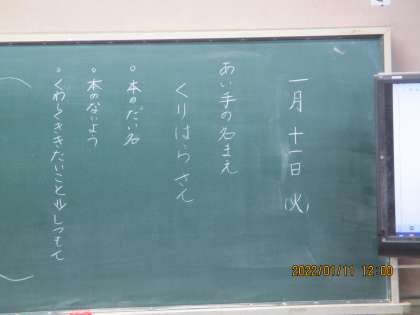 一月十一日(火)
あい手の名まえ
くりはらさん
○本のだい名
○本のないよう
○くわしくききたいこと⇒しつもん
2022/01/11 12:00